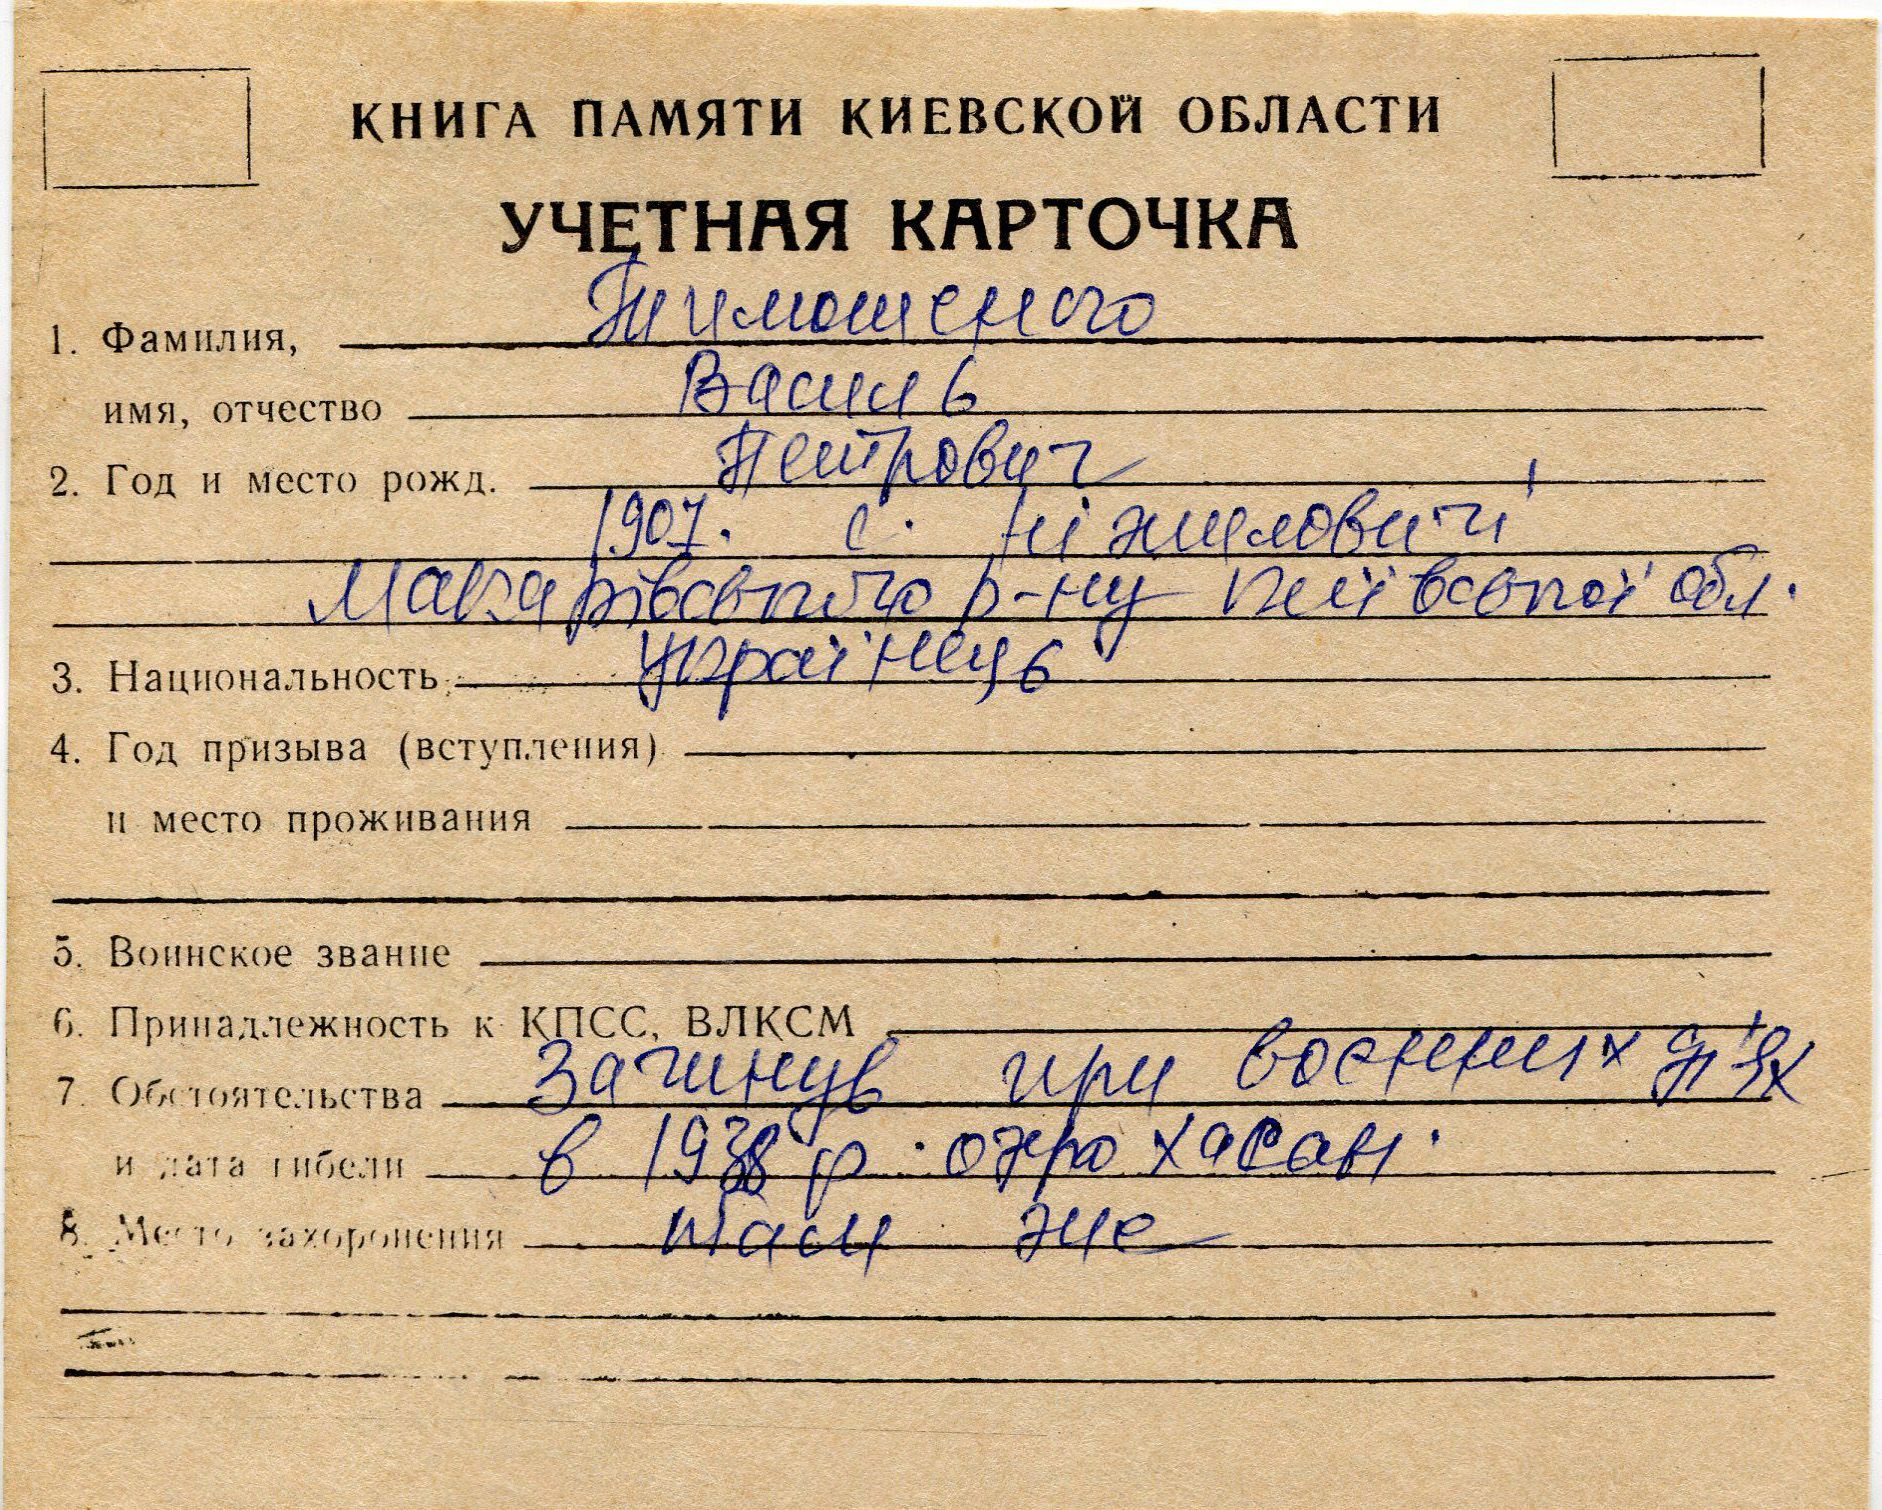 КНИГА ПАМЯТИ КИЕВСКОЙ ОБЛАСТИ
УЧЕТНАЯ КАРТОЧКА
1. Фамилия, Тимошенко
имя, отчество Василь
2. Год и место рожд. Петрович
1907. с. Ніжиловичі
Макарівського р-ну Київської обл.
3. Национальность Українець
4. Год призыва (вступления)
и место проживания
5. Воинское звание
6. Принадлежность к КПСС, ВЛКСМ
7. Обстоятельства Загинув при воєнних діях
и дата гибели в 1938 р. озеро Хасан.
8. Место захоронения там же